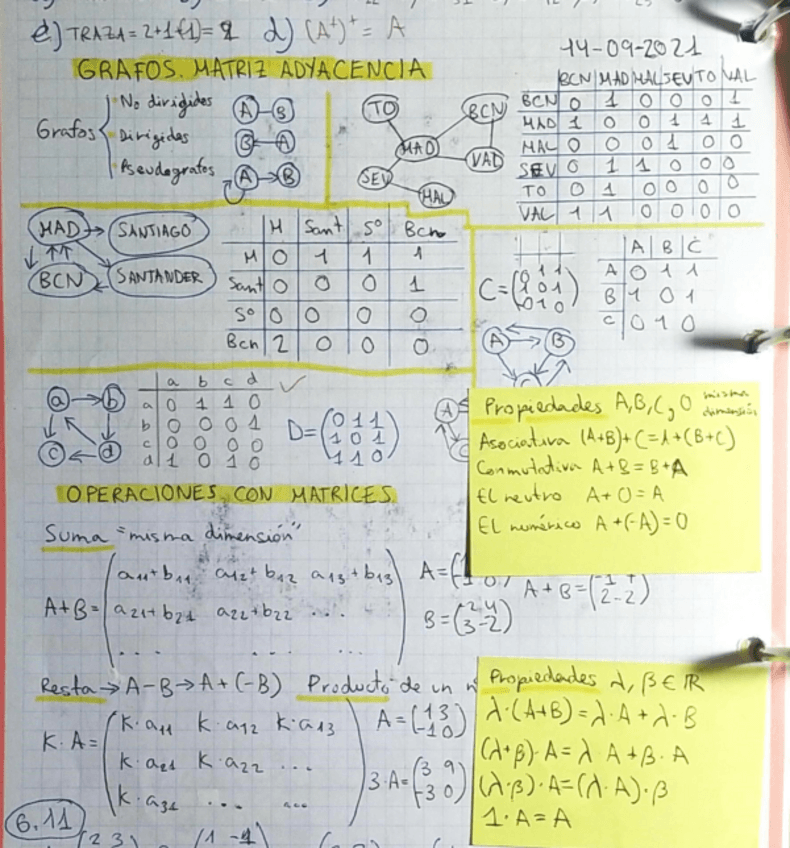 e) TRAZA = 2+1+(-1) = 2 d) (A⁺)⁺ = A
14-09-2021
GRAFOS. MATRIZ ADYACENCIA
Grafos
No dirigides A B
Dirigides B A
Pseudografos A B
TO BCN MAD VAL SEV MAL
BCN MAD MAL SEV TO VAL
BCN 0 1 0 0 0 1
MAD 1 0 0 1 1 1
MAL 0 0 0 1 0 0
SEV 0 1 1 0 0 0
TO 0 1 0 0 0 0
VAL 1 1 0 0 0 0
MAD SANTIAGO
BCN SANTANDER
M Sant Sº Bcn
M 0 1 1 1
Sant 0 0 0 1
Sº 0 0 0 0
Bcn 2 0 0 0
C = (0 1 1
1 0 1
0 1 0)
A B C
A 0 1 1
B 1 0 1
C 0 1 0
A B
a b
c d
a b c d
a 0 1 1 0
b 0 0 0 1
c 0 0 0 0
d 1 0 1 0
D = (0 1 1
1 0 1
1 1 0)
A
Propiedades A, B, C, O misma dimensión
Asociativa (A+B)+C = A+(B+C)
Conmutativa A+B = B+A
El neutro A+O = A
El numérico A+(-A) = O
OPERACIONES CON MATRICES
Suma "misma dimensión"
A+B = (a11+b11 a12+b12 a13+b13
a21+b21 a22+b22 ...
... ... ...)
B = (-2 4
3 -2)
A+B = (-1 7
2 -2)
Resta → A-B → A+(-B) Producto de un n
K·A = (K·a11 K·a12 K·a13
K·a21 K·a22 ...
K·a31 ... ...)
A = (1 3
-1 0)
3·A = (3 9
-3 0)
Propiedades λ, β ∈ IR
λ·(A+B) = λ·A + λ·B
(λ+β)·A = λ·A + β·A
(λ·β)·A = (λ·A)·β
1·A = A
6.11
(2 3) (1 -1)